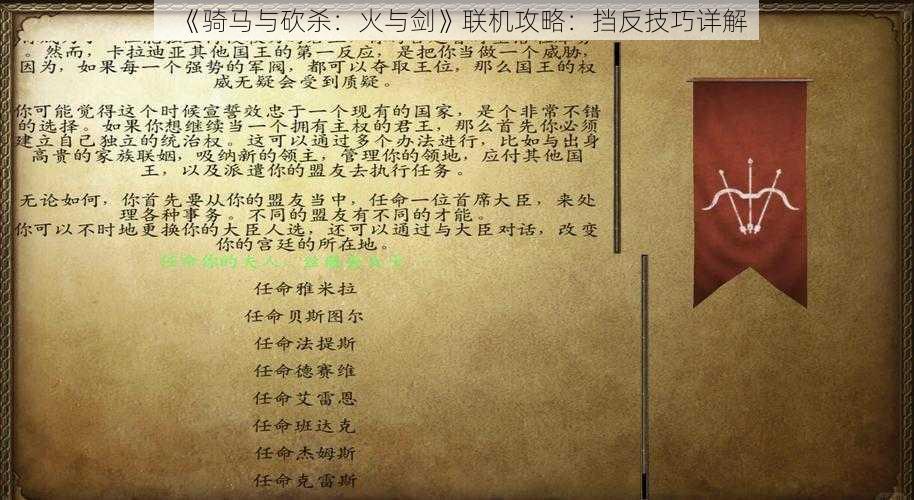 《骑马与砍杀：火与剑》联机攻略：挡反技巧详解
。然而，卡拉迪亚其他国王的第一反应，是把你当做一个威胁，
因为，如果每一个强势的军阀，都可以夺取王位，那么国王的权
威无疑会受到质疑。
你可能觉得这个时候宣誓效忠于一个现有的国家，是个非常不错
的选择。如果你想继续当一个拥有主权的君王，那么首先你必须
建立自己独立的统治权。这可以通过多个办法进行，比如与出身
高贵的家族联姻，吸纳新的领主，管理你的领地，应付其他国
王，以及派遣你的盟友去执行任务。
无论如何，你首先要从你的盟友当中，任命一位首席大臣，来处
理各种事务。不同的盟友有不同的才能。
你可以不时地更换你的大臣人选，还可以通过与大臣对话，改变
你的宫廷的所在地。
任命你的夫人，
任命雅米拉
任命贝斯图尔
任命法提斯
任命德赛维
任命艾雷恩
任命班达克
任命杰姆斯
任命克雷斯